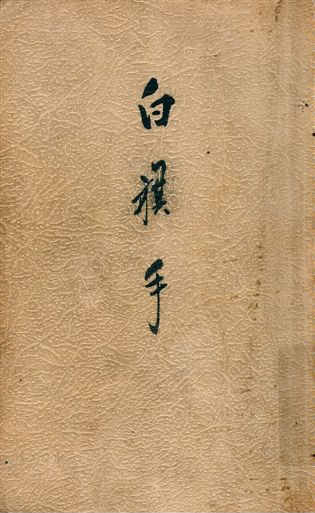 白旗手